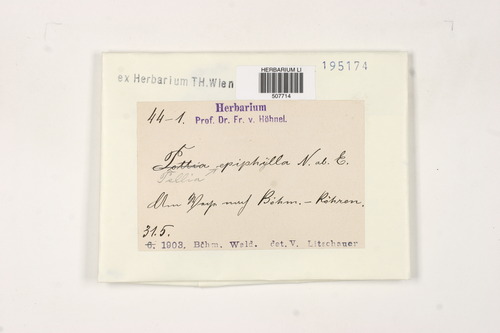 ex Herbarium TH.Wien
HERBARIUM LI
507714
195174
44-1.
Herbarium
Prof. Dr. Fr. v. Höhnel.
Pottia epiphylla N. ab. E.
Pellia
Am Wege nach Böhm. - Röhren.
31.5.
6. 1903, Böhm. Wald. det. V. Litschauer